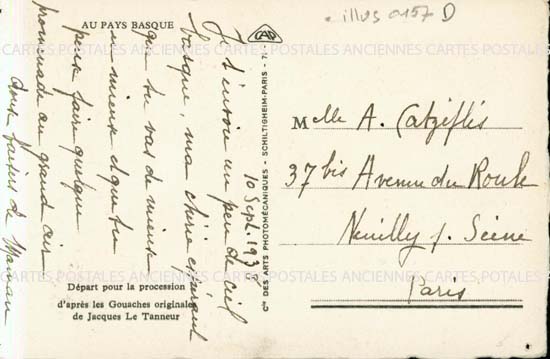 AU PAYS BASQUE
illus 0157 D
CARTES POSTALES ANCIENNES CARTES POSTALES ANCIENNES CARTES POSTALES ANCIENNES
10 Sept. 193
J'envoie un peu de ciel
basque, ma chère espérant
que tu vas de mieux
en mieux et que tu
peux faire quelque
promenade au grand air
doux baisers de Maman
Départ pour la procession
d'après les Gouaches originales
de Jacques Le Tanneur
CAP
Cie DES ARTS PHOTOMÉCANIQUES - SCHILTIGHEIM-PARIS - 71
Melle A. Catziflis
37 bis Avenue du Roule
Neuilly s. Seine
Paris